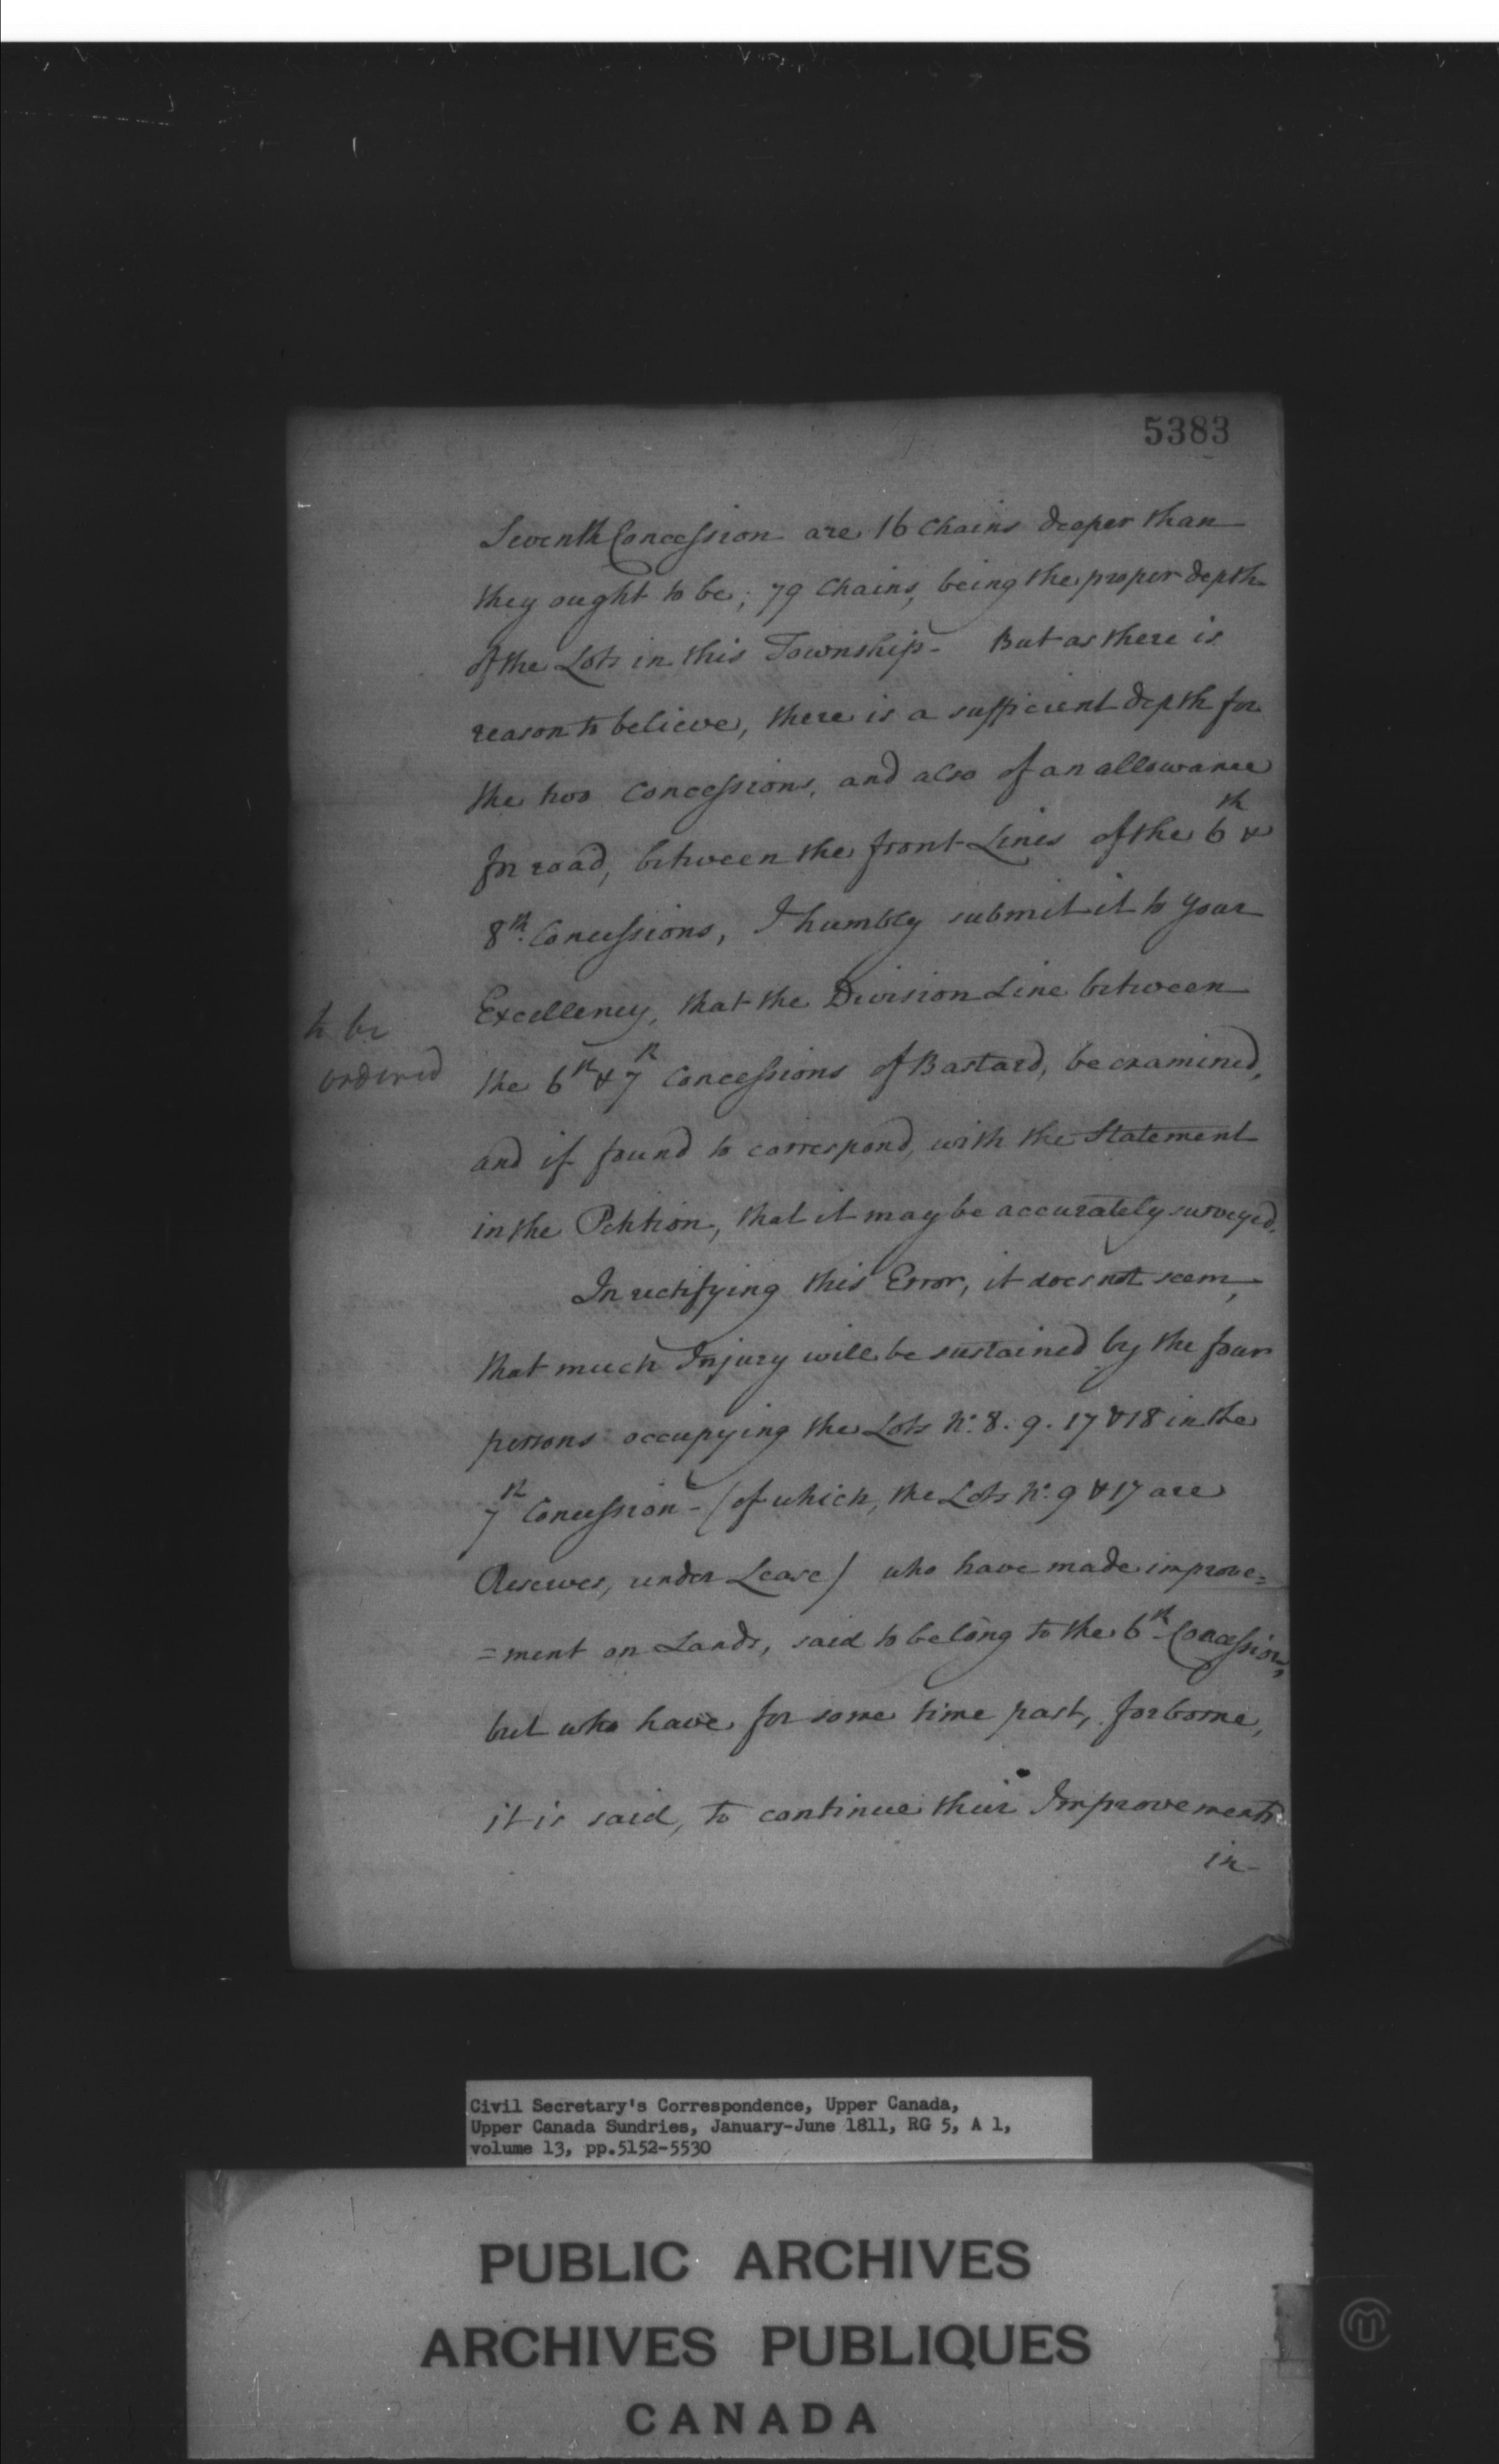 5383
Seventh Concession are 16 Chains deeper than
they ought to be; 79 Chains, being the proper depth
of the Lots in this Township. But as there is
reason to believe, there is a sufficient depth for
the two Concessions, and also of an allowance
for road, between the front Lines of the 6th &
8th Concessions, I humbly submit it to your
Excellency, that the Division Line between
to be
ordered
the 6th & 7th Concessions of Bastard, be examined,
and if found to correspond, with the Statement
in the Petition, that it may be accurately surveyed.
In rectifying this Error, it does not seem,
that much Injury will be sustained by the four
persons occupying the Lots No. 8. 9. 17 & 18 in the
7th Concession - (of which, the Lots No. 9 & 17 are
Reserves, under Lease) who have made improve=
=ment on Lands, said to belong to the 6th Concession,
but who have for some time past, forborne,
it is said, to continue their Improvements
in-
Civil Secretary's Correspondence, Upper Canada,
Upper Canada Sundries, January-June 1811, RG 5, A 1,
volume 13, pp.5152-5530
PUBLIC ARCHIVES
ARCHIVES PUBLIQUES
CANADA